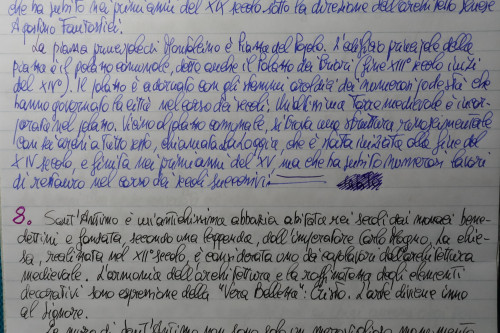 che ha subito nei primi anni del XIX secolo sotto la direzione dell'architetto senese
Agostino Fantastici.
La piazza principale di Montalcino è Piazza del Popolo. L'edificio principale della
piazza è il palazzo comunale, detto anche il Palazzo dei Priori (fine XIII secolo inizi
del XIV). Il palazzo è adornato con gli stemmi araldici dei numerosi podestà che
hanno governato la città nel corso dei secoli. Un'altissima torre medievale è incor-
porata nel palazzo. Vicino al palazzo comunale, si trova una struttura rinascimentale
con sei archi a tutto sesto, chiamata La Loggia, che è stata iniziata alla fine del
XIV secolo e finita nei primi anni del XV, ma che ha subito numerosi lavori
di restauro nel corso dei secoli successivi.
8. Sant'Antimo è un'antichissima abbazia abitata nei secoli dai monaci bene-
dettini e fondata, secondo una leggenda, dall'imperatore Carlo Magno. La chie-
sa, realizzata nel XII° secolo, è considerata uno dei capolavori dell'architettura
medievale. L'armonia dell'architettura e la raffinatezza degli elementi
decorativi sono espressione della "Vera Bellezza": Cristo. L'arte diviene inno
al Signore.
Le mura di Sant'Antimo non sono solo un meraviglioso monumento